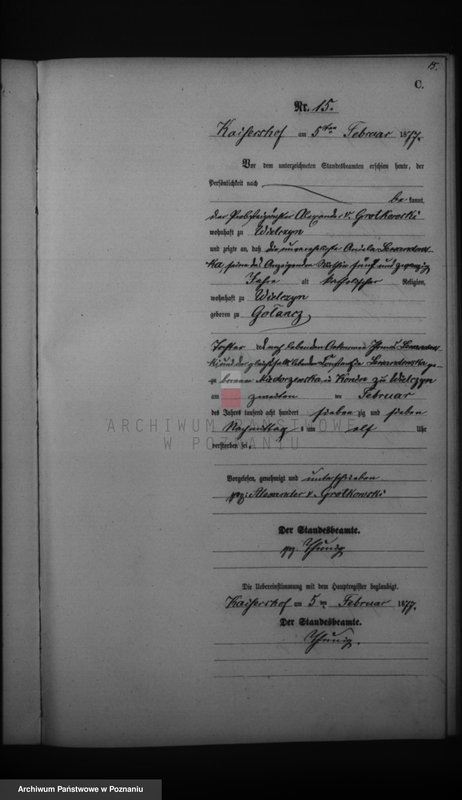 15.
C.
Nr. 15.
Kaisershof am 5ten Februar 1877.
Vor dem unterzeichneten Standesbeamten erschien heute, der
Persönlichkeit nach
be kannt,
der Probsteipächter Alexander v. Grolkowski
wohnhaft zu Wielczyn
und zeigte an, daß die unverehelichte Aniela
fünf und zwanzig
Jahre alt katholischer Religion,
wohnhaft zu Wielczyn
geboren zu Gołancz
Tochter lebenden
zu Wielczyn
am zweiten Februar
des Jahres tausend acht hundert sieben zig und sieben
Nachmittag um elf Uhr
verstorben sei.
Vorgelesen, genehmigt und unterschrieben
gez: Alexander v. Grolkowski
Der Standesbeamte.
gez
Die Uebereinstimmung mit dem Hauptregister beglaubigt.
Kaisershof am 5ten Februar 1877.
Der Standesbeamte.
ARCHIWUM PAŃSTWOWE
W POZNANIU
Archiwum Państwowe w Poznaniu